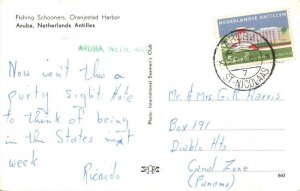 Fishing Schooners, Oranjestad Harbor
Aruba, Netherlands Antilles
ARUBA, NETH. ANT
NEDERLANDSE ANTILLEN
ARUBA
7
ST. NICOLAAS
Now isn't this a
purty Sight Note
to think of being
in the States next
week
Ricardo
Photo: International Seamen's Club
Mr. & Mrs G. R. Harris
Box 191
Diablo Hts
Canal Zone
(Panama)
860